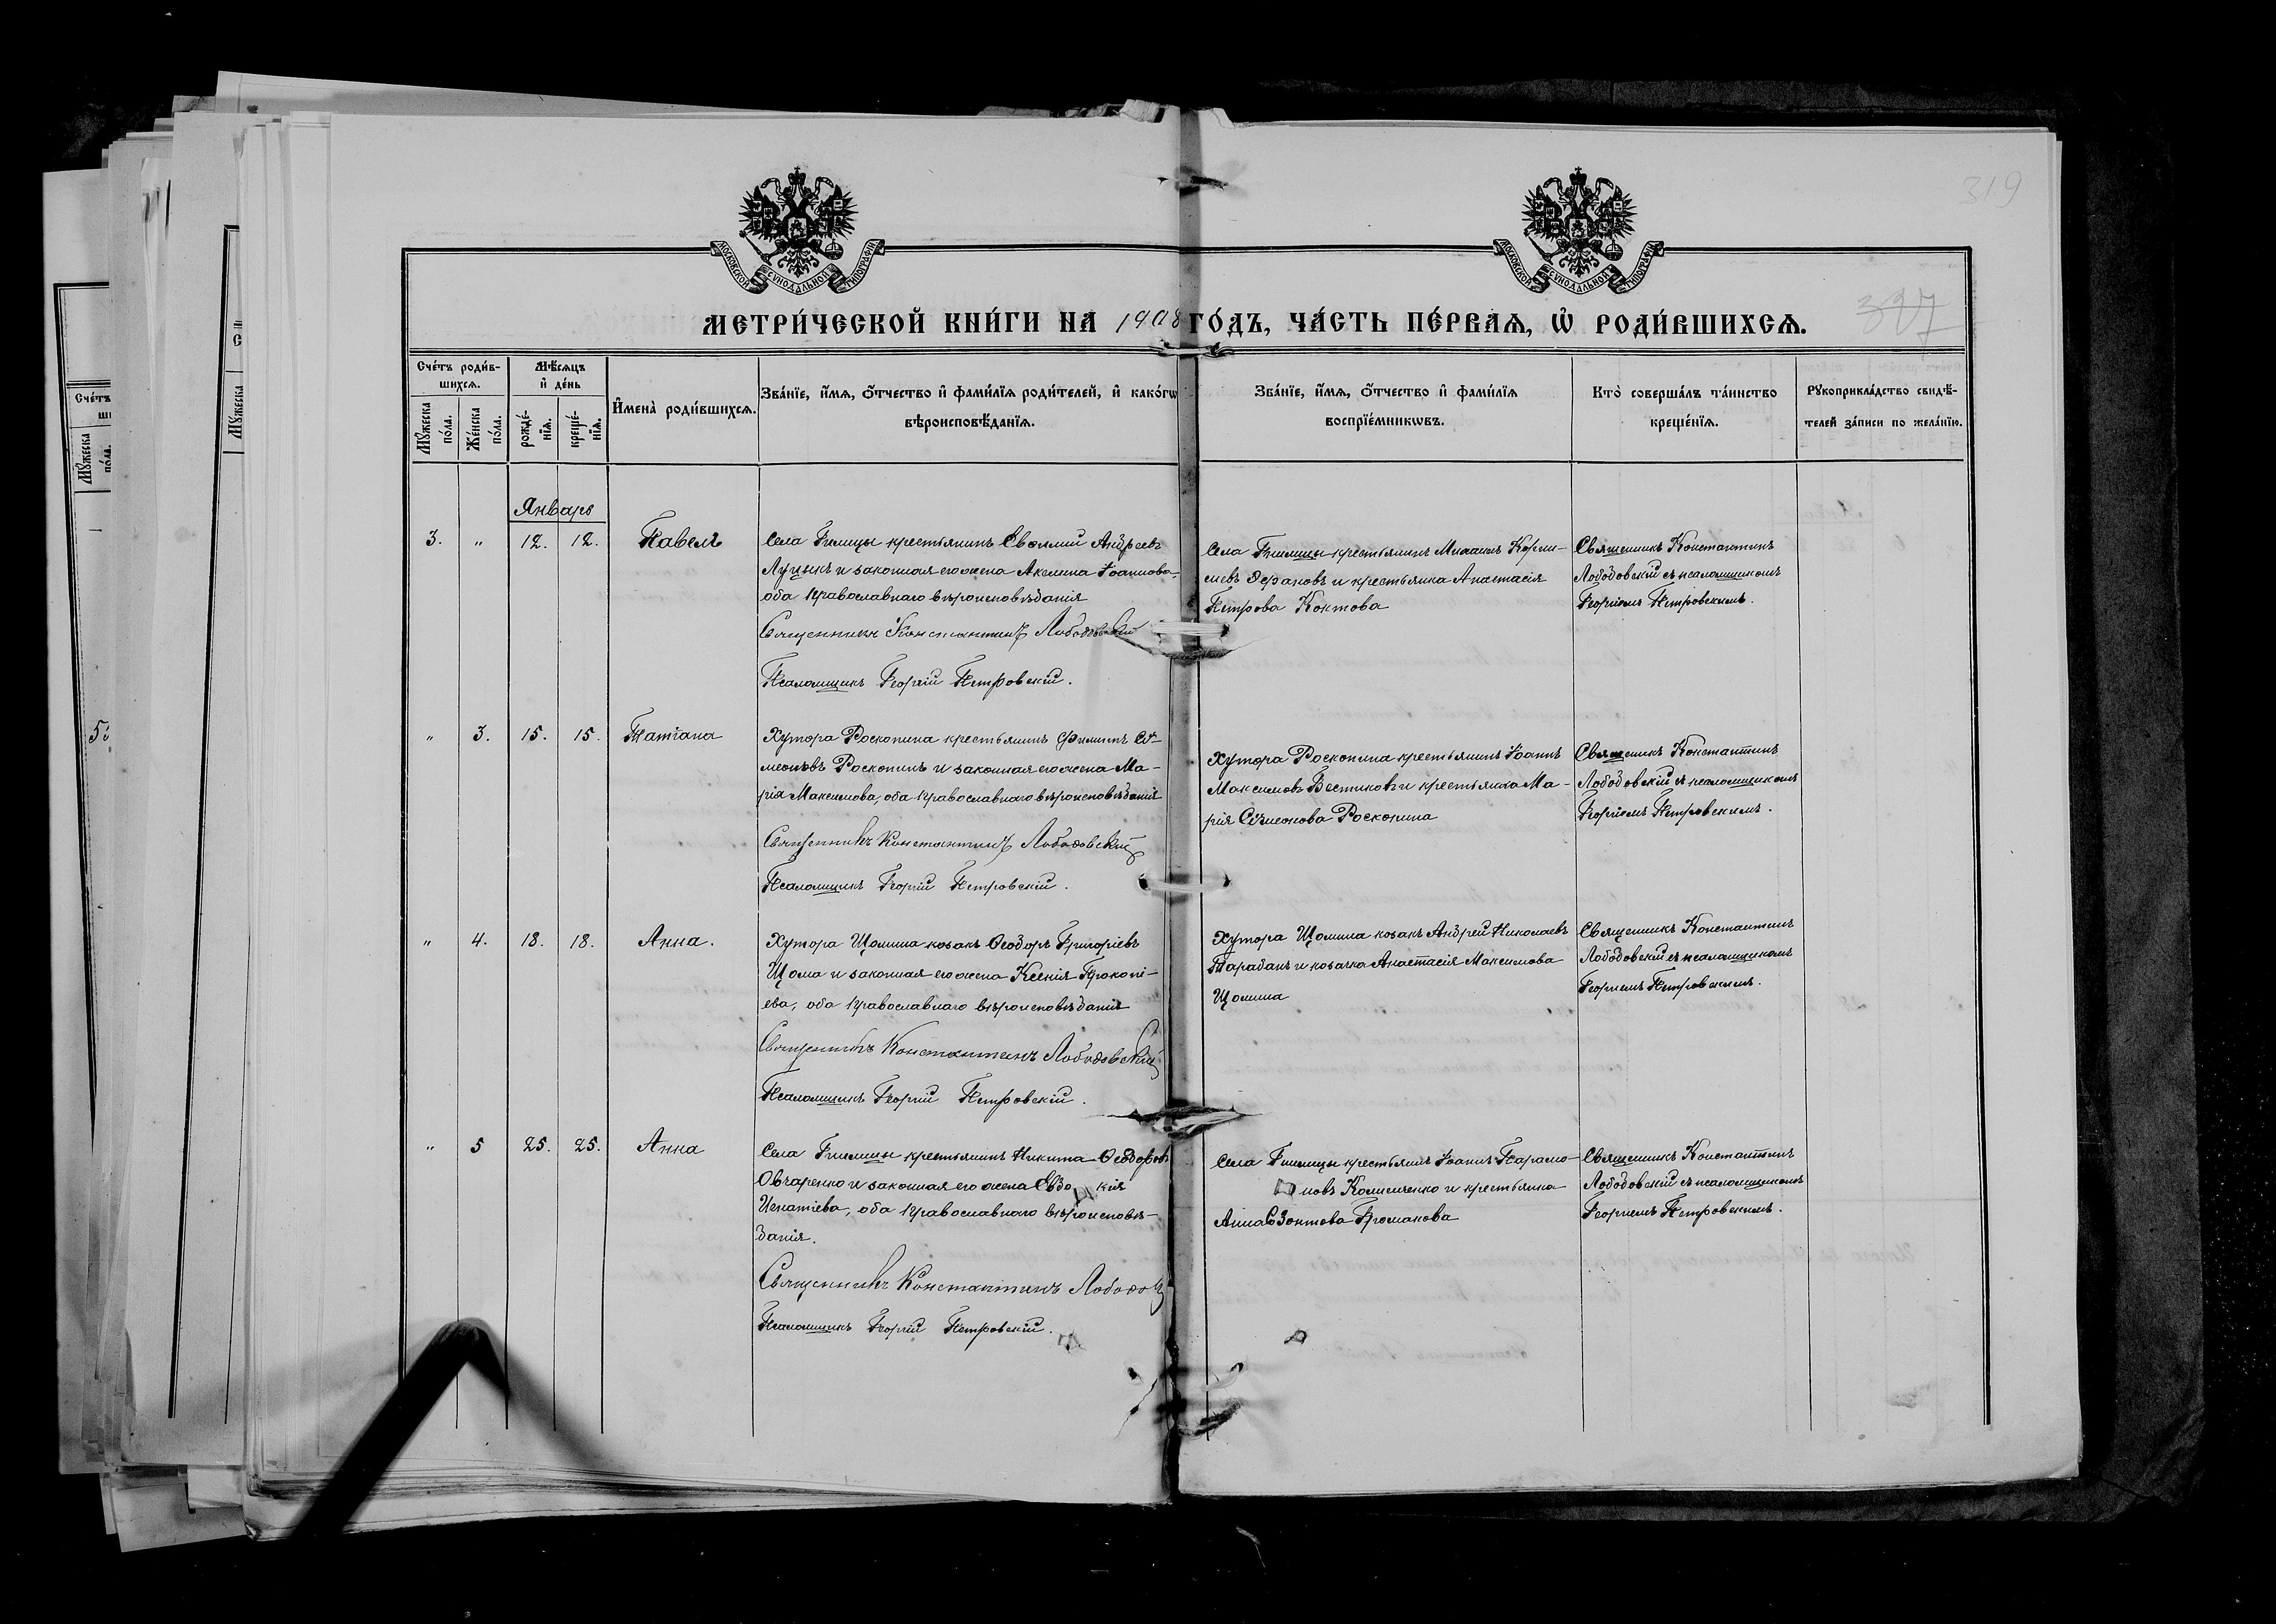 319
МОСКОВСКОЙ СѴНОДАЛЬНОЙ ТИПОГРАФІИ
МОСКОВСКОЙ СѴНОДАЛЬНОЙ ТИПОГРАФІИ
МЕТРИ́ЧЕСКОЙ КНИ́ГИ НА 1908 ГО́ДЪ, ЧА́СТЬ ПЕ́РВАѦ, Ѽ РОДИ́ВШИХСѦ.
Сче́тъ роди́в-
шихсѧ.
Мѣ́сѧцъ
и҆ де́нь
Мꙋ́жеска по́ла.
Же́нска по́ла.
рожде́-
нїѧ.
креще́-
нїѧ.
И҆мена̀ роди́вшихсѧ.
Зва́нїе, и҆́мѧ, ѻ҆́тчество и҆ фами́лїѧ роди́телей, и҆ како́гѡ
вѣроисповѣ́данїѧ.
Зва́нїе, и҆́мѧ, ѻ҆́тчество и҆ фами́лїѧ
воспрїе́мникѡвъ.
Кто̀ соверша́лъ та́инство
креще́нїѧ.
Рꙋкоприкла́дство свидѣ́-
телей за́писи по жела́нїю.
Январь
3. " 12. 12. Павелъ
Села Гнилицы крестьянинъ Андреевъ
и законная его жена Акилина Іоаннова,
оба православнаго вѣроисповѣданія
Священникъ Константинъ Лободовскій
Псаломщикъ Георгій Петровскій.
Села Гнилицы крестьянинъ Михаилъ Корни-
ліевъ и крестьянка Анастасія
Петрова
Священникъ Константинъ
Лободовскій съ псаломщикомъ
Георгіемъ Петровскимъ.
" 3. 15. 15. Татіана
Хутора Роскопина крестьянинъ Филиппъ Сѵ-
меоновъ Роскопинъ и законная его жена Ма-
рія Максимова, оба православнаго вѣроисповѣданія
Священникъ Константинъ Лободовскій
Псаломщикъ Георгій Петровскій.
Хутора Роскопина крестьянинъ Іоаннъ
Максимовъ и крестьянка Ма-
рія Сѵмеонова Роскопина
Священникъ Константинъ
Лободовскій съ псаломщикомъ
Георгіемъ Петровскимъ.
" 4. 18. 18. Анна.
Хутора Щомина козакъ Ѳеодоръ Григоріевъ
Щома и законная его жена Ксенія Прокопі-
ева, оба православнаго вѣроисповѣданія
Священникъ Константинъ Лободовскій
Псаломщикъ Георгій Петровскій.
Хутора Щомина козакъ Андрей Николаевъ
Тарабанъ и козачка Анастасія Максимова
Щомина
Священникъ Константинъ
Лободовскій съ псаломщикомъ
Георгіемъ Петровскимъ.
" 5 25. 25. Анна
Села Гнилицы крестьянинъ Никита Ѳеодоровъ
Овчаренко и законная его жена Евдокія
Игнатіева, оба православнаго вѣроисповѣ-
данія.
Священникъ Константинъ Лободов
Псаломщикъ Георгій Петровскій.
Села Гнилицы крестьянинъ Іоаннъ Парамо-
новъ и крестьянка
Анна Созонтова Громакова
Священникъ Константинъ
Лободовскій съ псаломщикомъ
Георгіемъ Петровскимъ.